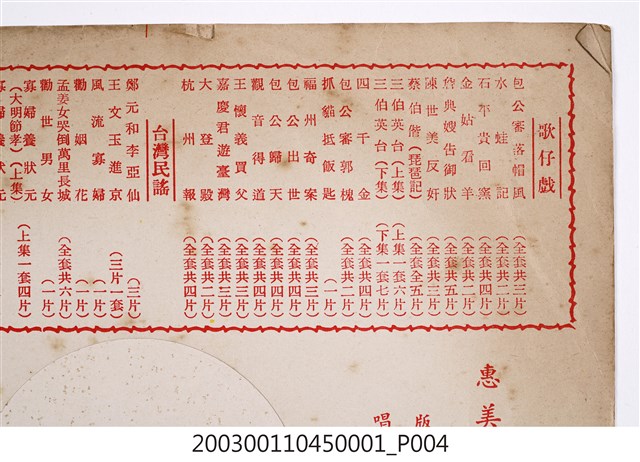 歌仔戲
包公審落帽風 (全套共三片)
水蛙記 (全套共二片)
石平貴回窰 (全套共四片)
金姑看羊 (全套共二片)
詹典嫂告御狀 (全套共五片)
陳世美反奸 (全套共三片)
蔡伯偕(琵琶記) (全套全五片)
三伯英台(上集) (上集一套六片)
三伯英台(下集) (下集一套七片)
四千金 (全套共四片)
包公審郭槐 (全套共二片)
抓貓抵飯匙 (一片)
福州奇案 (全套共三片)
包公出世 (全套共四片)
包公歸天 (全套共四片)
觀音得道 (全套共四片)
王懷義買父 (全套共三片)
嘉慶君遊臺灣 (全套共三片)
大登殿 (全套共二片)
杭州報 (全套共四片)
台灣民謠
鄭元和李亞仙 (三片)
王文玉進京 (三片一套)
風流寡婦 (一片)
勸姻花 (一片)
勸世男女 (一片)
孟姜女哭倒萬里長城 (全套共六片)
寡婦養狀元
(大明節孝)(上集) (上集一套四片)
寡婦養狀元
惠美
版
唱
200300110450001_P004